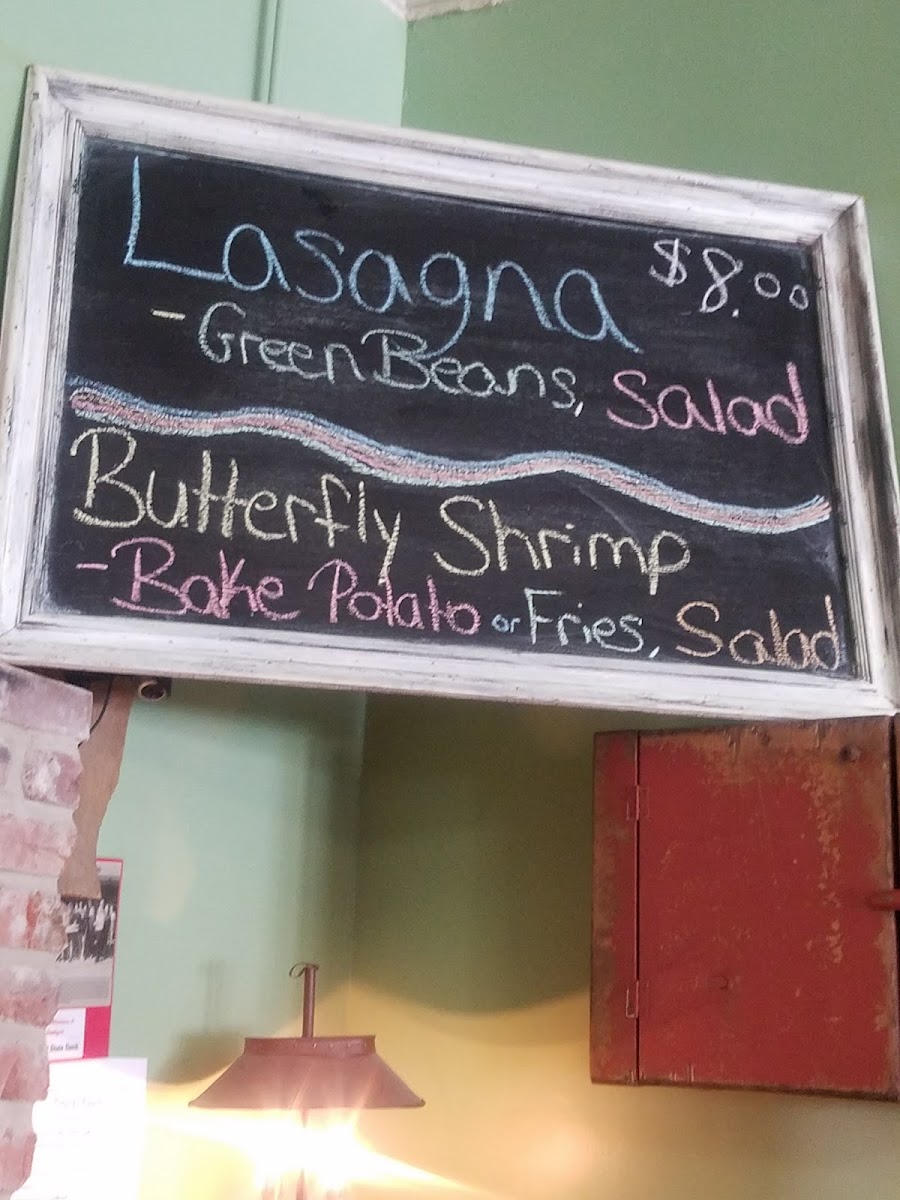 Lasagna $8.00
- Green Beans, Salad
Butterfly Shrimp
- Bake Potato or Fries, Salad